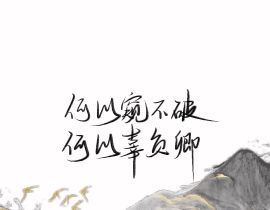 何以窥不破
何以辜负卿